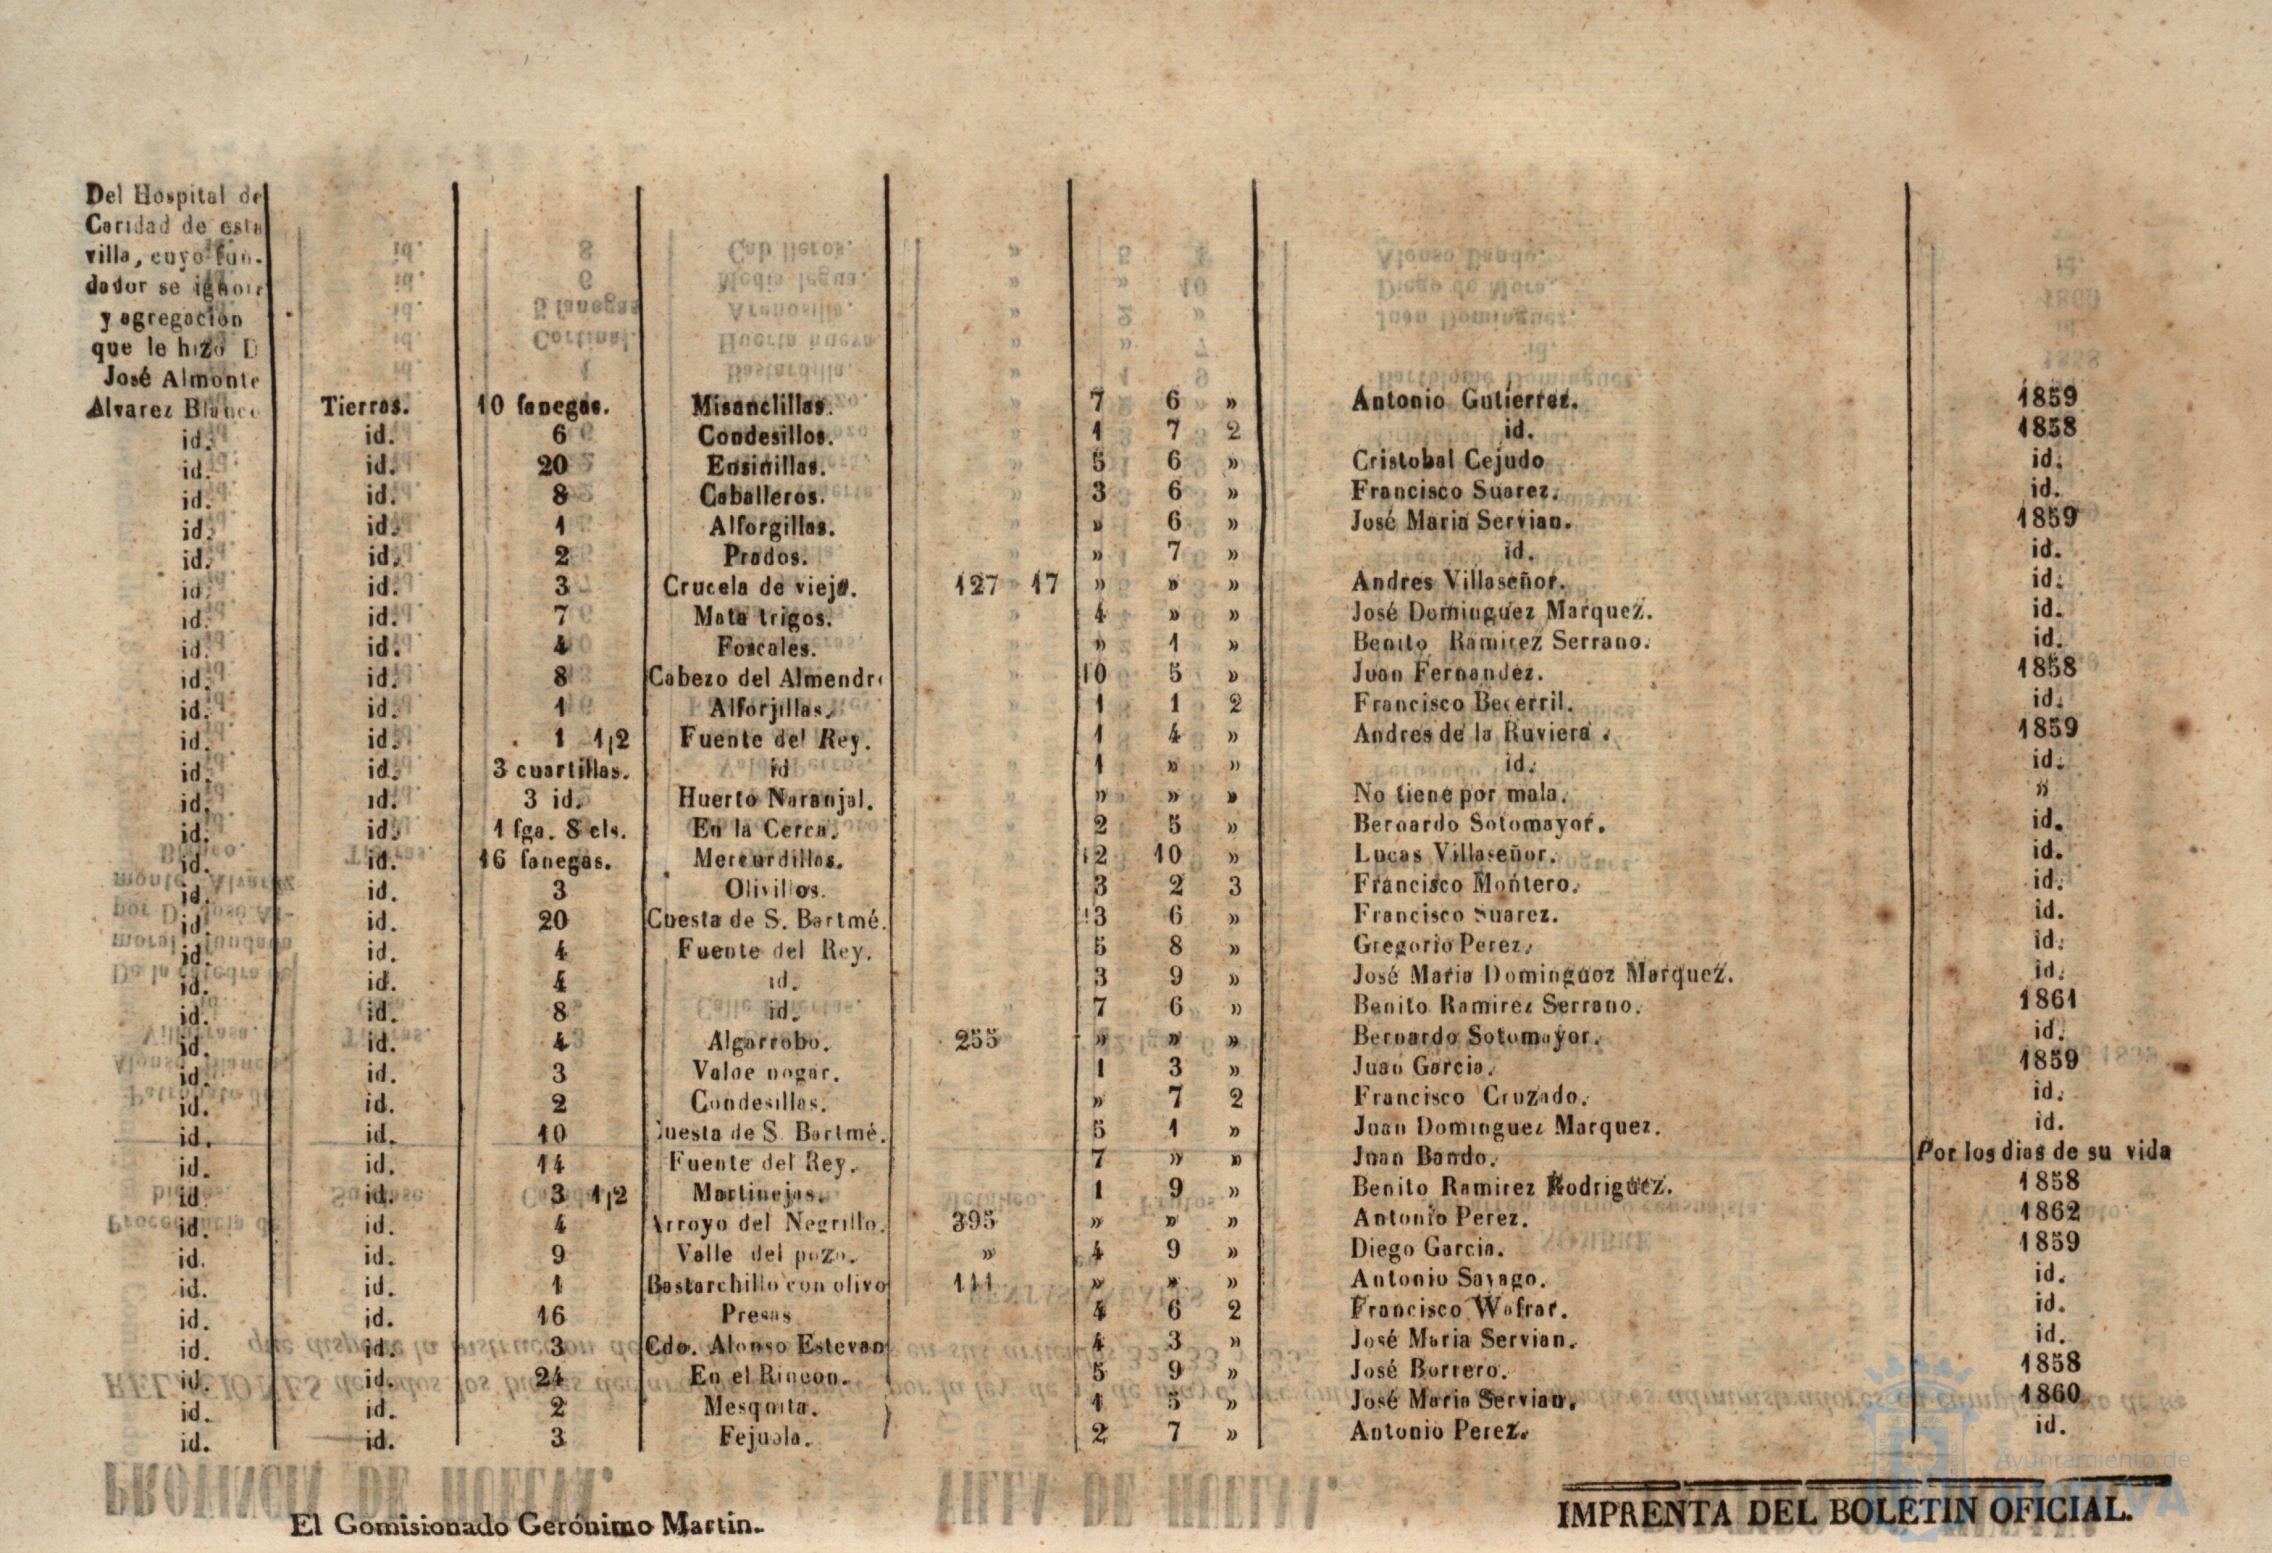 Del Hospital de
Caridad de esta
villa, cuyo fun-
dador se ignora
y agregacion
que le hizo D
José Almonte
Alvarez Blanco Tierras. 10 fanegas. Misanclillas. 7 6 » Antonio Gutierrez. 1859
id. id. 6 Condesillos. 1 7 2 id. 1858
id. id. 20 Ensinillas. 5 6 » Cristobal Cejudo id.
id. id. 8 Caballeros. 3 6 » Francisco Suarez. id.
id. id. 1 Alforgillas. » 6 » José Maria Servian. 1859
id. id. 2 Prados. » 7 » id. id.
id. id. 3 Crucela de vieja. 127 17 » » » Andres Villaseñor. id.
id. id. 7 Mata trigos. 4 » » José Dominguez Marquez. id.
id. id. 4 Foscales. » 1 » Benito Ramirez Serrano. id.
id. id. 8 Cabezo del Almendro 10 5 » Juan Fernandez. 1858
id. id. 1 Alforjillas. 1 1 2 Francisco Becerril. id.
id. id. 1 1|2 Fuente del Rey. 1 4 » Andres de la Ruviera . 1859
id. id. 3 cuartillas. id 1 » » id. id.
id. id. 3 id. Huerto Naranjal. » » » No tiene por mala. »
id. id. 1 fga. 8 cls. En la Cerca. 2 5 » Bernardo Sotomayor. id.
id. id. 16 fanegas. Mercurdillas. 12 10 » Lucas Villaseñor. id.
id. id. 3 Olivillos. 3 2 3 Francisco Montero. id.
id. id. 20 Cuesta de S. Bartmé. 13 6 » Francisco Suarez. id.
id. id. 4 Fuente del Rey. 5 8 » Gregorio Perez. id.
id. id. 4 id. 3 9 » José Maria Dominguoz Marquez. id.
id. id. 8 id. 7 6 » Benito Ramirez Serrano. 1861
id. id. 4 Algarrobo. 255 » » » Bernardo Sotomayor. id.
id. id. 3 Valde nogar. 1 3 » Juan Garcia. 1859
id. id. 2 Condesillas. » 7 2 Francisco Cruzado. id.
id. id. 10 Cuesta de S. Bartmé. 5 1 » Juan Dominguez Marquez. id.
id. id. 14 Fuente del Rey. 7 » » Juan Bando. Por los dias de su vida
id id. 3 1|2 Martinejas. 1 9 » Benito Ramirez Rodriguez. 1858
id. id. 4 Arroyo del Negrillo. 395 » » » Antonio Perez. 1862
id. id. 9 Valle del pozo. » 4 9 » Diego Garcia. 1859
id. id. 1 Bastarchillo con olivo 111 » » » Antonio Sayago. id.
id. id. 16 Presas 4 6 2 Francisco Wafrar. id.
id. id. 3 Cdo. Alonso Estevan 4 3 » José Maria Servian. id.
id. id. 24 En el Rincon. 5 9 » José Borrero. 1858
id. id. 2 Mesquita. 1 5 » José Maria Servian. 1860
id. id. 3 Fejuela. 2 7 » Antonio Perez. id.
El Comisionado Gerónimo Martin.
IMPRENTA DEL BOLETIN OFICIAL.
Ayuntamiento de